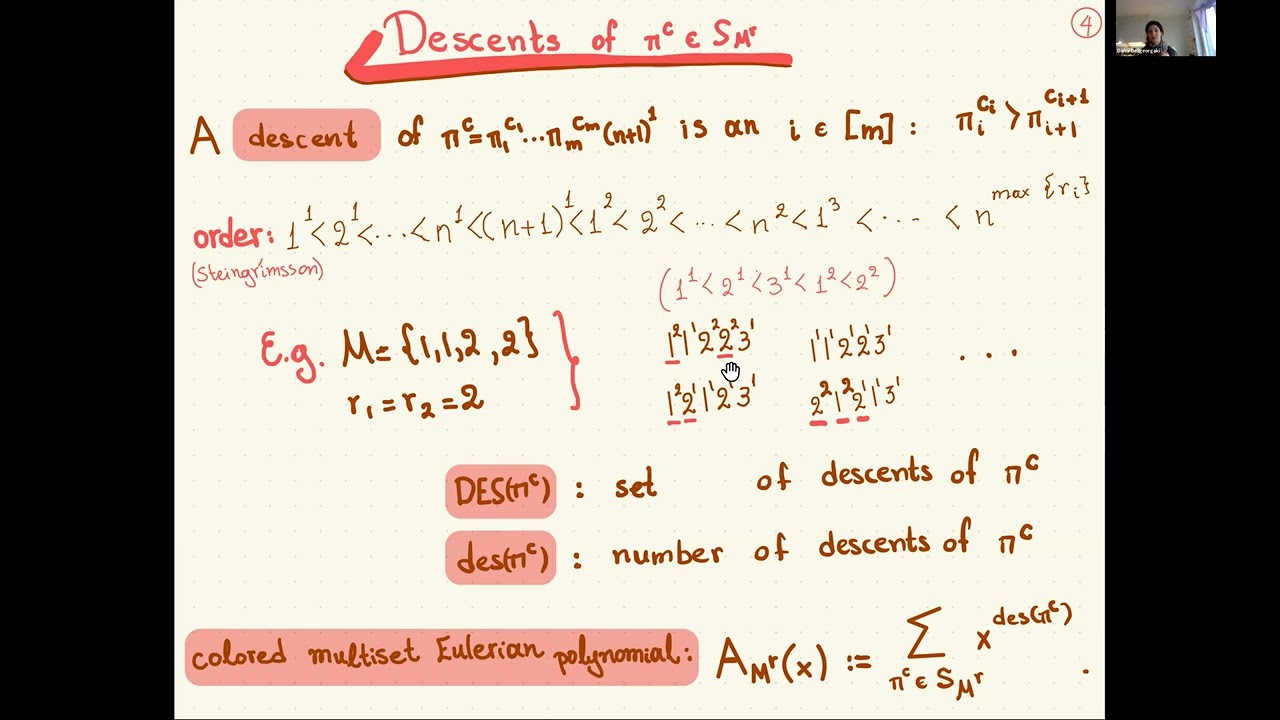 Descents of π^c ∈ S_{M^r}
④
Danai Deligeorgaki
A descent of π^c = π_1^{c_1} ... π_m^{c_m} (n+1)^1 is an i ∈ [m] : π_i^{c_i} > π_{i+1}^{c_{i+1}}
order: 1^1 < 2^1 < ... < n^1 < (n+1)^1 < 1^2 < 2^2 < ... < n^2 < 1^3 < ... < n^{max {r_i}}
(Steingrímsson)
(1^1 < 2^1 < 3^1 < 1^2 < 2^2)
E.g. M = {1,1,2,2}
r_1 = r_2 = 2
1^2 1^1 2^2 2^2 3^1 1^1 1^1 2^1 2^1 3^1 ...
1^2 2^1 1^1 2^1 3^1 2^2 1^2 2^1 1^1 3^1
DES(π^c) : set of descents of π^c
des(π^c) : number of descents of π^c
colored multiset Eulerian polynomial: A_{M^r}(x) := ∑_{π^c ∈ S_{M^r}} x^{des(π^c)} .